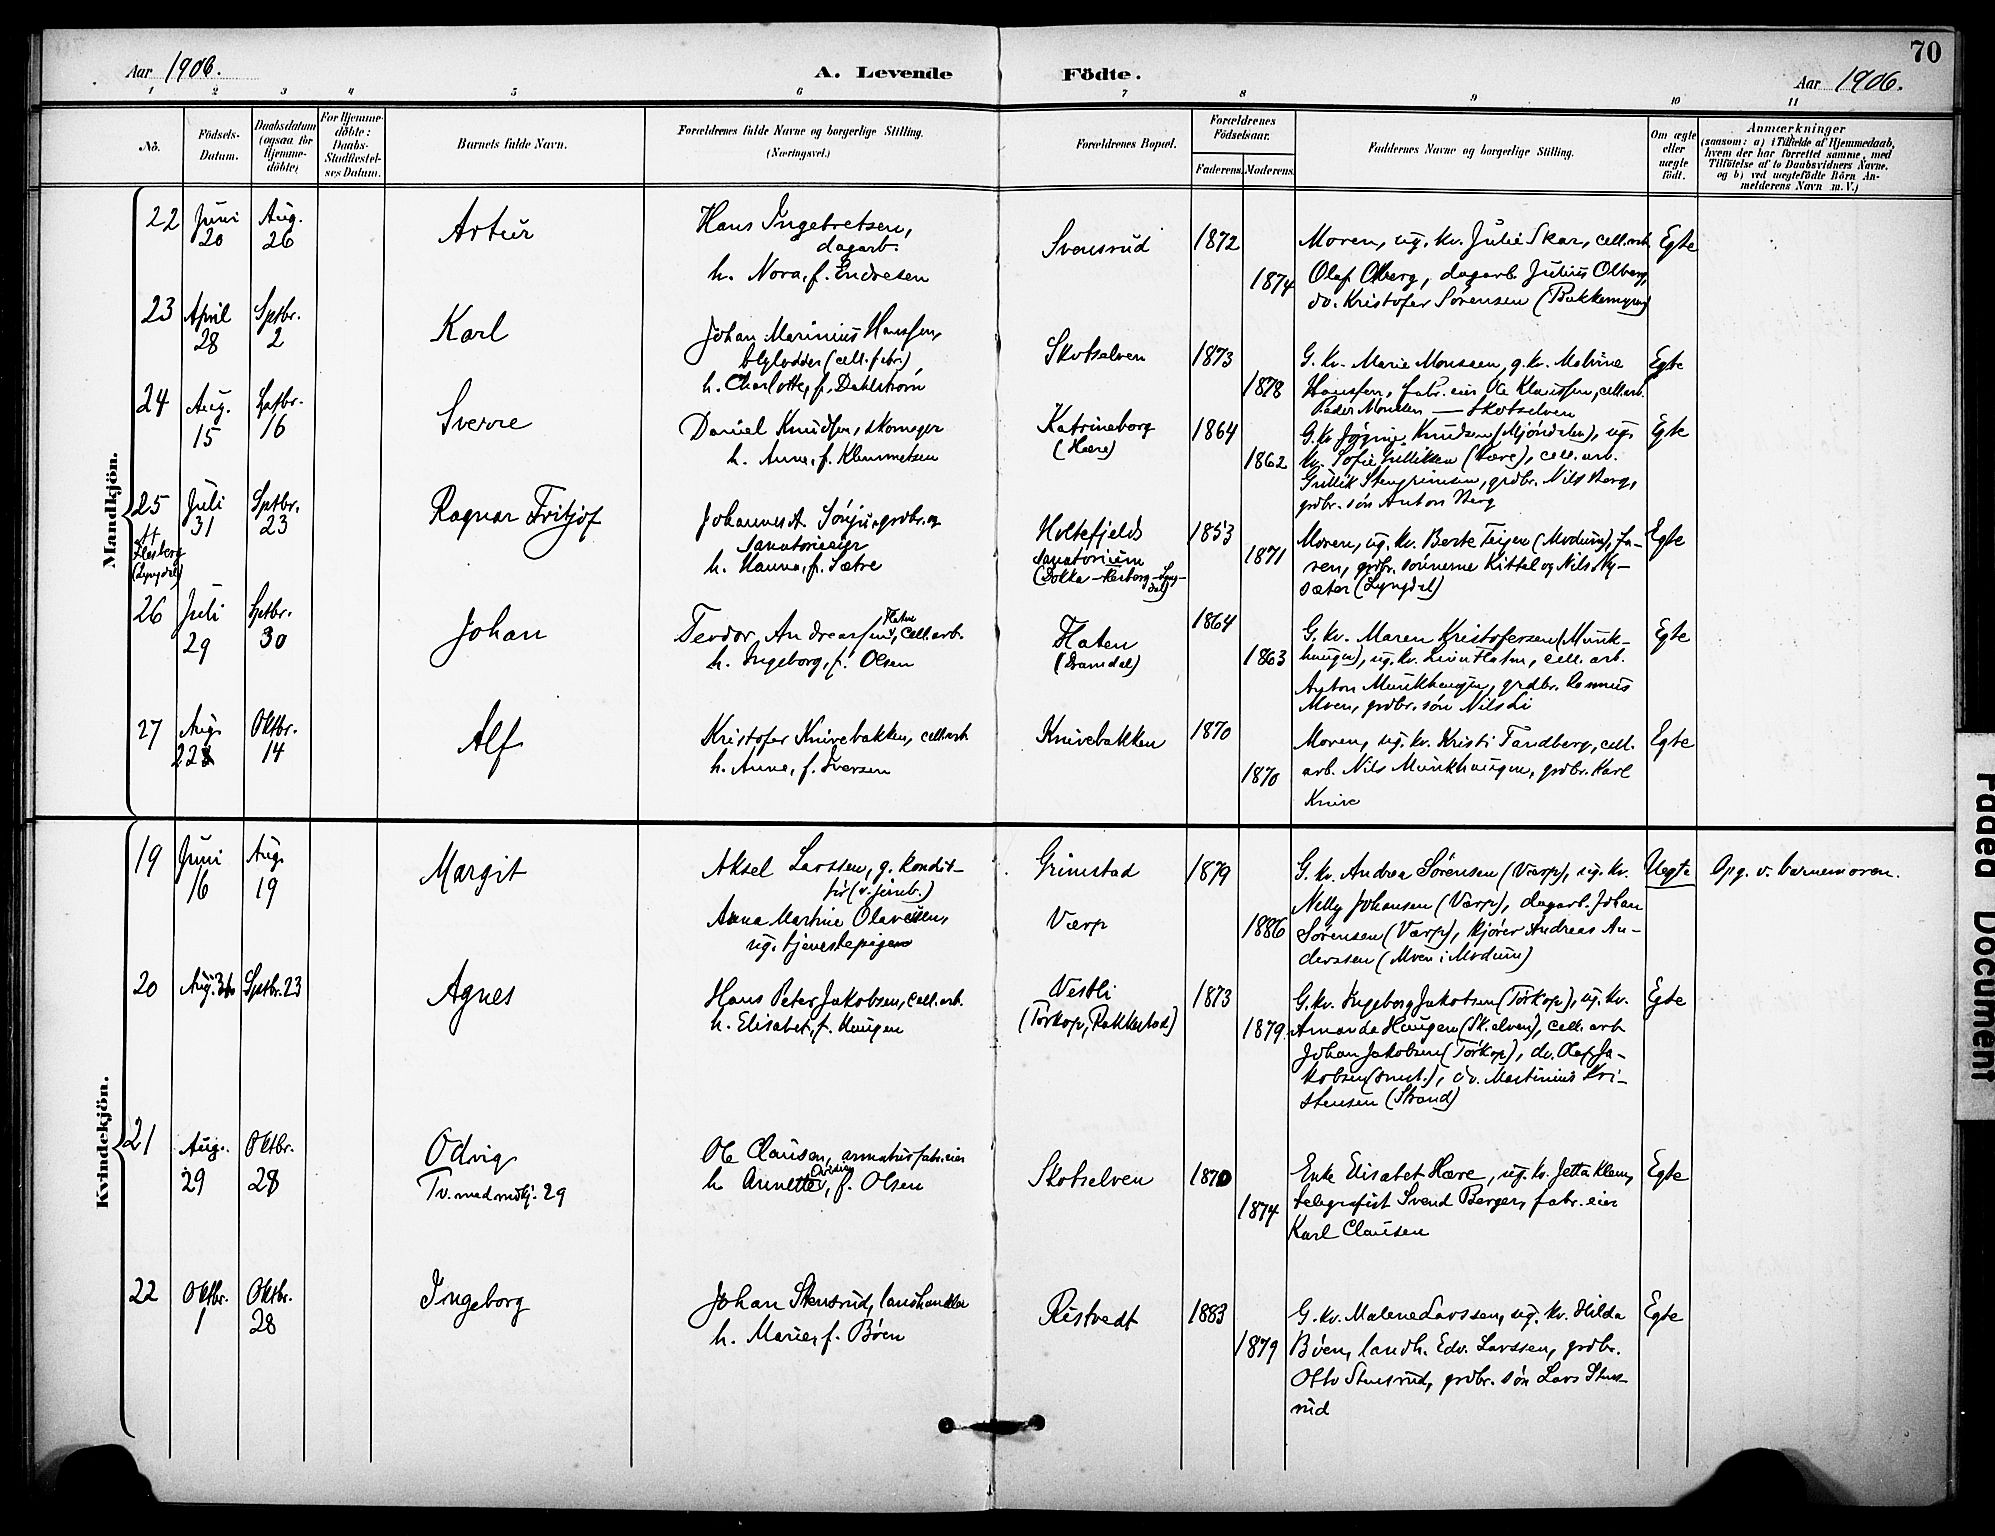 70
Aar 1906.
A. Levende Födte.
Aar 1906.
1 2 3 4 5 6 7 8 9 10 11
No.
Födsels-Datum.
Daabsdatum (ogsaa for Hjemme-döbte)
For Hjemme-döbte: Daabs-Stadfæstel-ses Datum.
Barnets fulde Navn.
Forældrenes fulde Navne og borgerlige Stilling.
(Næringsvei.)
Forældrenes Bopæl.
Forældrenes Födselsaar.
Faderens. Moderens.
Faddernes Navne og borgerlige Stilling.
Om ægte eller uægte födt.
Anmærkninger
(saasom: a) i Tilfælde af Hjemmedaab,
hvem der har forrettet samme, med
Tilföielse af to Daabsvidners Navne.
og b) ved uægtefödte Börn An-
melderens Navn m. V.)
Mandkjön.
22 Juni 20 Aug. 26
Artur
Hans Ingebretsen,
dagarb.
h. Nora, f. Endresen
Svensrud
1872
1874
Moren, ug. kv. Julie Skar, cell.arb
Olaf Olberg, dagarb Julius Olberg,
do. Kristofer Sørensen (Bakkemyren)
Egte
23 April 28 Sptbr. 2
Karl
Johan Marinius Hanssen,
blylodder (cell.fabr.)
h. Charlotte, f. Dahlstrøm
Skotselven
1873
1878
G. kv. Marie Monssen, g. kv. Malvine
Hanssen, fabr.eier Ole Klaussen, cell.arb.
Peder Monssen — Skotselven
Egte
24 Aug. 15 Sptbr. 16
Sverre
Daniel Knudsen, skomager
h. Anne, f. Klemmetsen
Katrineborg
(Hære)
1864
1862
G. kv Jørgine Knudsen (Mjøndalen), ug.
kv. Sofie Gulliksen (Hære), cell. arb.
Gullik Stengrimsen, grdbr. Nils Berg,
grdbr. søn Anton Berg
Egte
25 Juli 31 Sptbr. 23
tt Flesberg
(Lyngdal)
Ragnar Fritjof
Johannes A. Sønju, grdbr. og
sanatorieeier
h. Hanna, f. Sætre
Holtefjelds
sanatorium
1853
1871
Moren, ug. kv. Berte Teigen (Modum), Fa-
ren, grdbr. sønnerne Kittel og Nils Ny-
sæter (Lyngdal)
Egte
26 Juli 29 Sptbr. 30
Johan
Teodor Andreassen Flaten, cell.arb.
h. Ingeborg, f. Olsen
Flaten
(Dramdal)
1864
1863
G. kv. Maren Kristofersen (Munk-
haugen), ug. kv. Lina Flaten, cell. arb.
Anton Munkhaugen, grdbr. Rasmus
Moen, grdbr. søn Nils Li
Egte
27 Aug. 22 Oktbr. 14
Alf
Kristofer Knivebakken, cell.arb
h. Anne, f. Iversen
Knivebakken
1870
1870
Moren, ug. kv. Kristi Tandberg, cell.
arb. Nils Munkhaugen, grdbr. Karl
Knive
Egte
Kvindekjön.
19 Juni 16 Aug. 19
Margit
Aksel Larssen, g. kondit-
tør (v. jernb.)
Anna Martine Olavesen,
ug. tjenestepige
Grimstad
Værp
1879
1886
G. kv. Andrea Sørensen (Værp), ug. kv.
Nelly Johansen (Værp), dagarb. Johan
Sørensen (Værp), kjører Andreas An-
derssen (Moen i Modum)
Uegte
Opg. v. barnemoren.
20 Aug. Sptbr. 23
Agnes
Hans Peter Jakobsen, cell.arb.
h. Elisabet, f. Haugen
Vestli
(Torkop, Rakkestad)
1873
1879
G. kv. Ingeborg Jakobsen (Torkop), ug. kv.
Amanda Haugen (Sk.elven), cell. arb
Johan Jakobsen (Torkop), do. Olaf Ja-
kobsen, do. Martinius Kri-
stensen (Strand)
Egte
21 Aug. 29 Oktbr. 28
Odvig
Tv. med mdkj. 29
Ole Clausen, armaturfabr.eier
h. Annette, f. Olsen
Skotselven
1870
1874
Enke Elisabet Hære, ug. kv. Jetta Klem,
telegrafist Svend Berger, fabr. eier
Karl Clausen
Egte
22 Oktbr. 1 Oktbr. 28
Ingeborg
Johan Stensrud, landhandler
h. Marie, f. Bøen
Ristvedt
1883
1879
G. kv. Malene Larssen, ug. kv. Hilda
Bøen, landh. Edv. Larssen, grdbr.
Otto Stensrud, grdbr. søn Lars Stens-
rud
Egte
Document